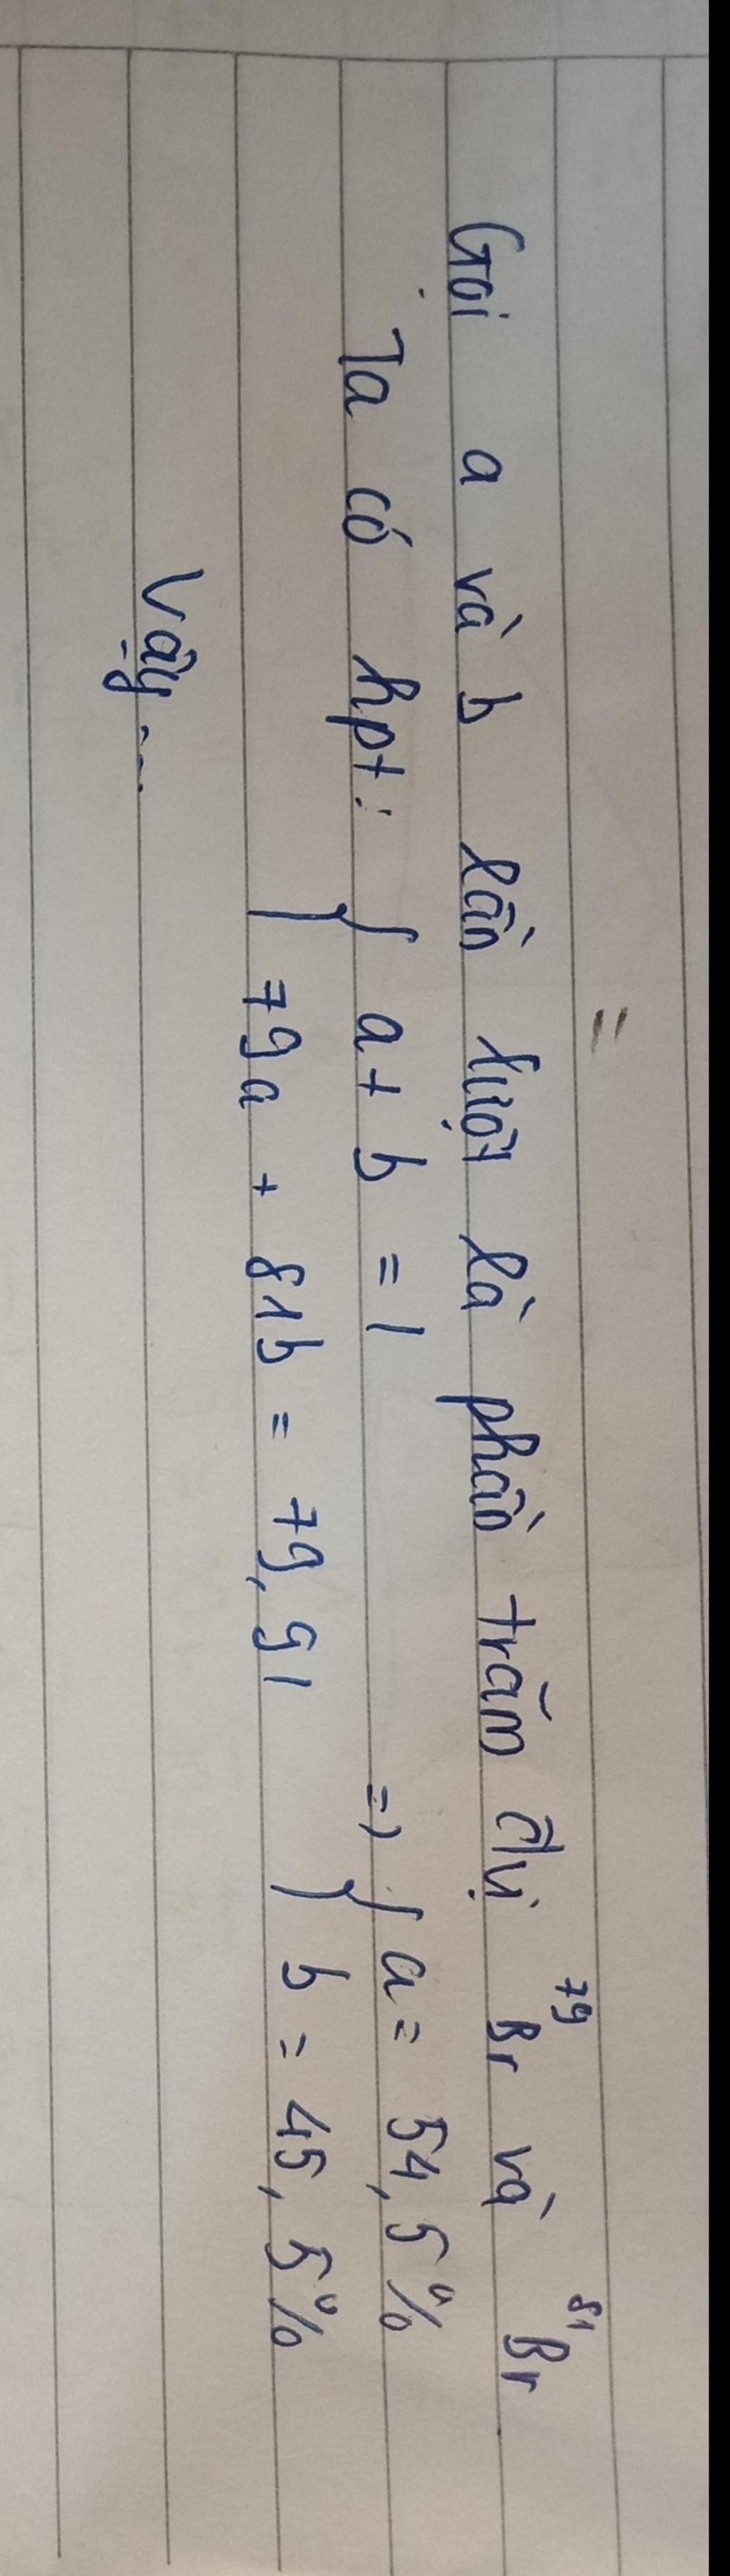 Gọi a và b lần lượt là phần trăm đvị ⁷⁹Br và ⁸¹Br
Ta có hpt: { a + b = 1 => { a = 54,5%
79a + 81b = 79,91 b = 45,5%
Vậy...